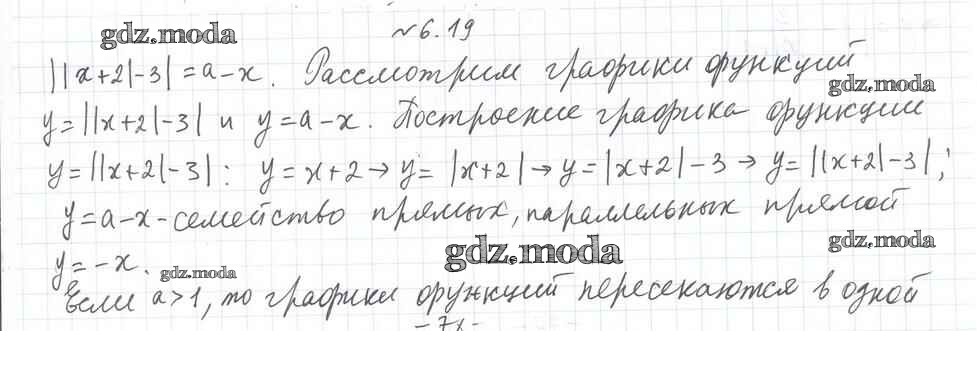 gdz.moda
№6.19
||x+2|-3|=a-x. Рассмотрим графики функций
gdz.moda
y=||x+2|-3| и y=a-x. Построение графика функции
y=||x+2|-3|: y=x+2→y=|x+2|→y=|x+2|-3→y=||x+2|-3|;
y=a-x-семейство прямых, параллельных прямой
gdz.moda
gdz.moda
y=-x.
gdz.moda
Если a>1, то графики функций пересекаются в одной